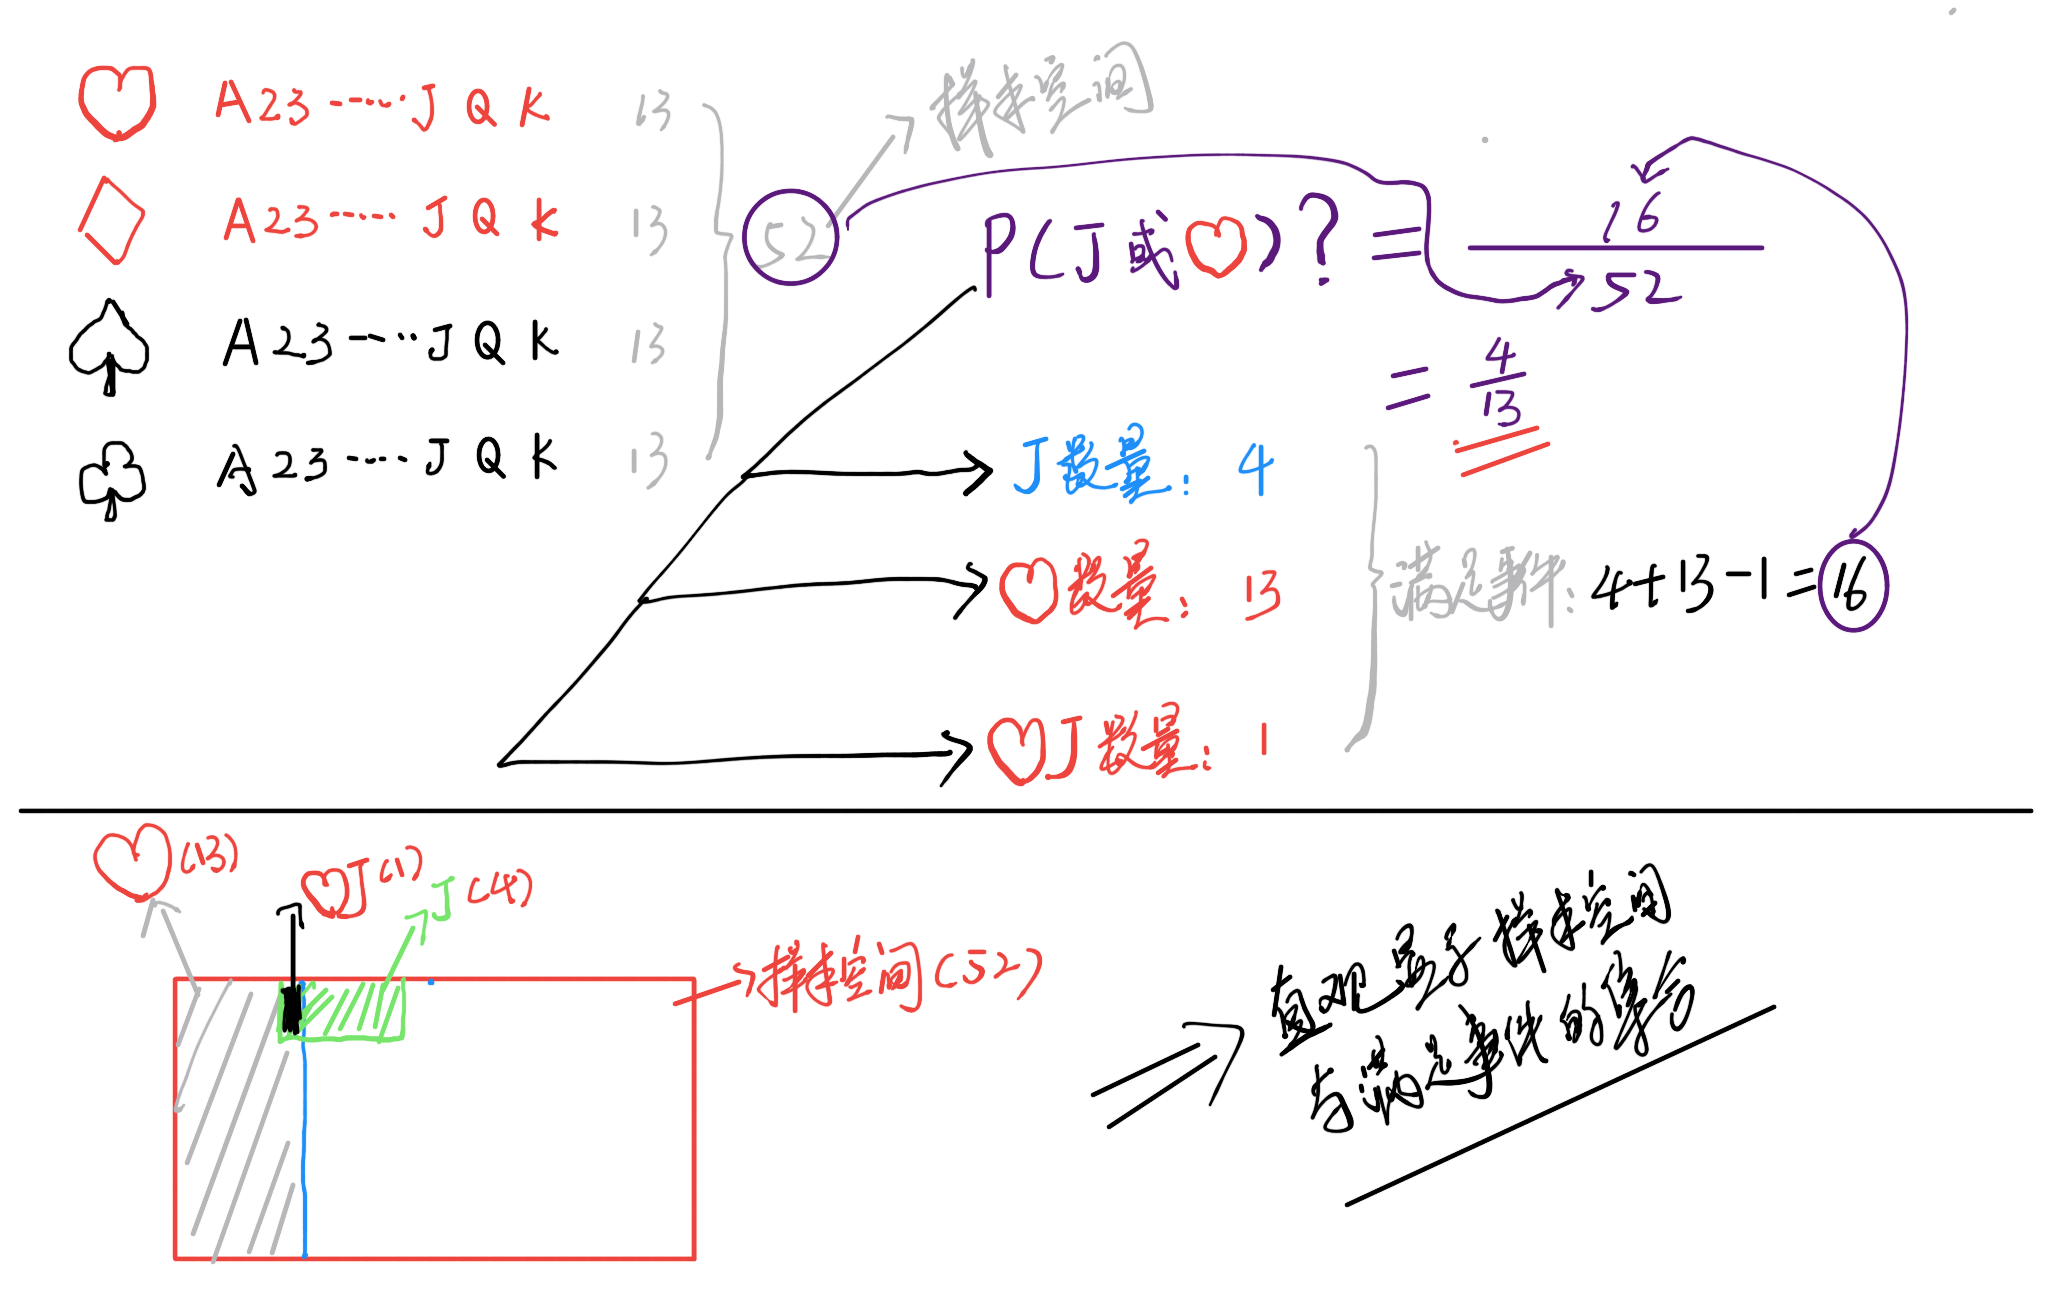 ♡ A 2 3 ······ J Q K 13
♢ A 2 3 ······ J Q K 13
♤ A 2 3 ······ J Q K 13
♧ A 2 3 ······ J Q K 13
52
样本空间
P(J或♡)? = 16/52
= 4/13
J数量: 4
♡数量: 13
♡J数量: 1
满足事件: 4+13-1=16
♡(13)
♡J(1)
J(4)
样本空间(52)
直观显示样本空间
与满足事件的集合